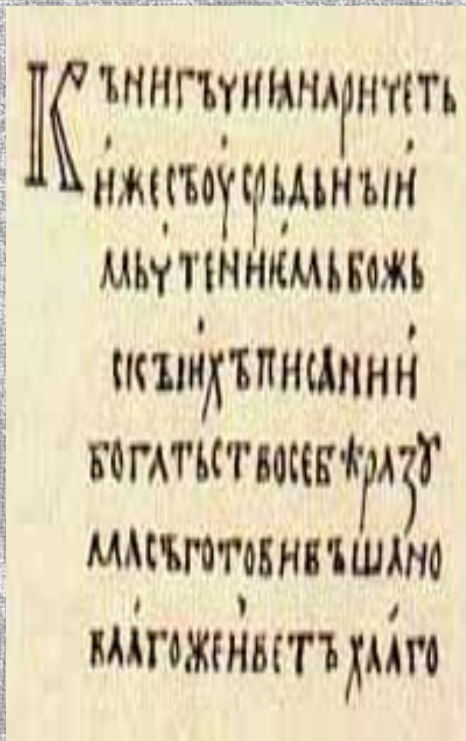 КЪНИГЪУИꙖНАРИЧЕТЬ
ИЖЕСЪОУСРЬДЬНЪІИ
МЬЧТЕНИѤМЬБОЖЬ
СКЪІИХЪПИСАНИИ
БОГАТЬСТВОСЕБѢРАЗꙊ
МАСЪГОТОВИВЪШАНО
ВЛАГОЖЕИВЕТЪХААГО